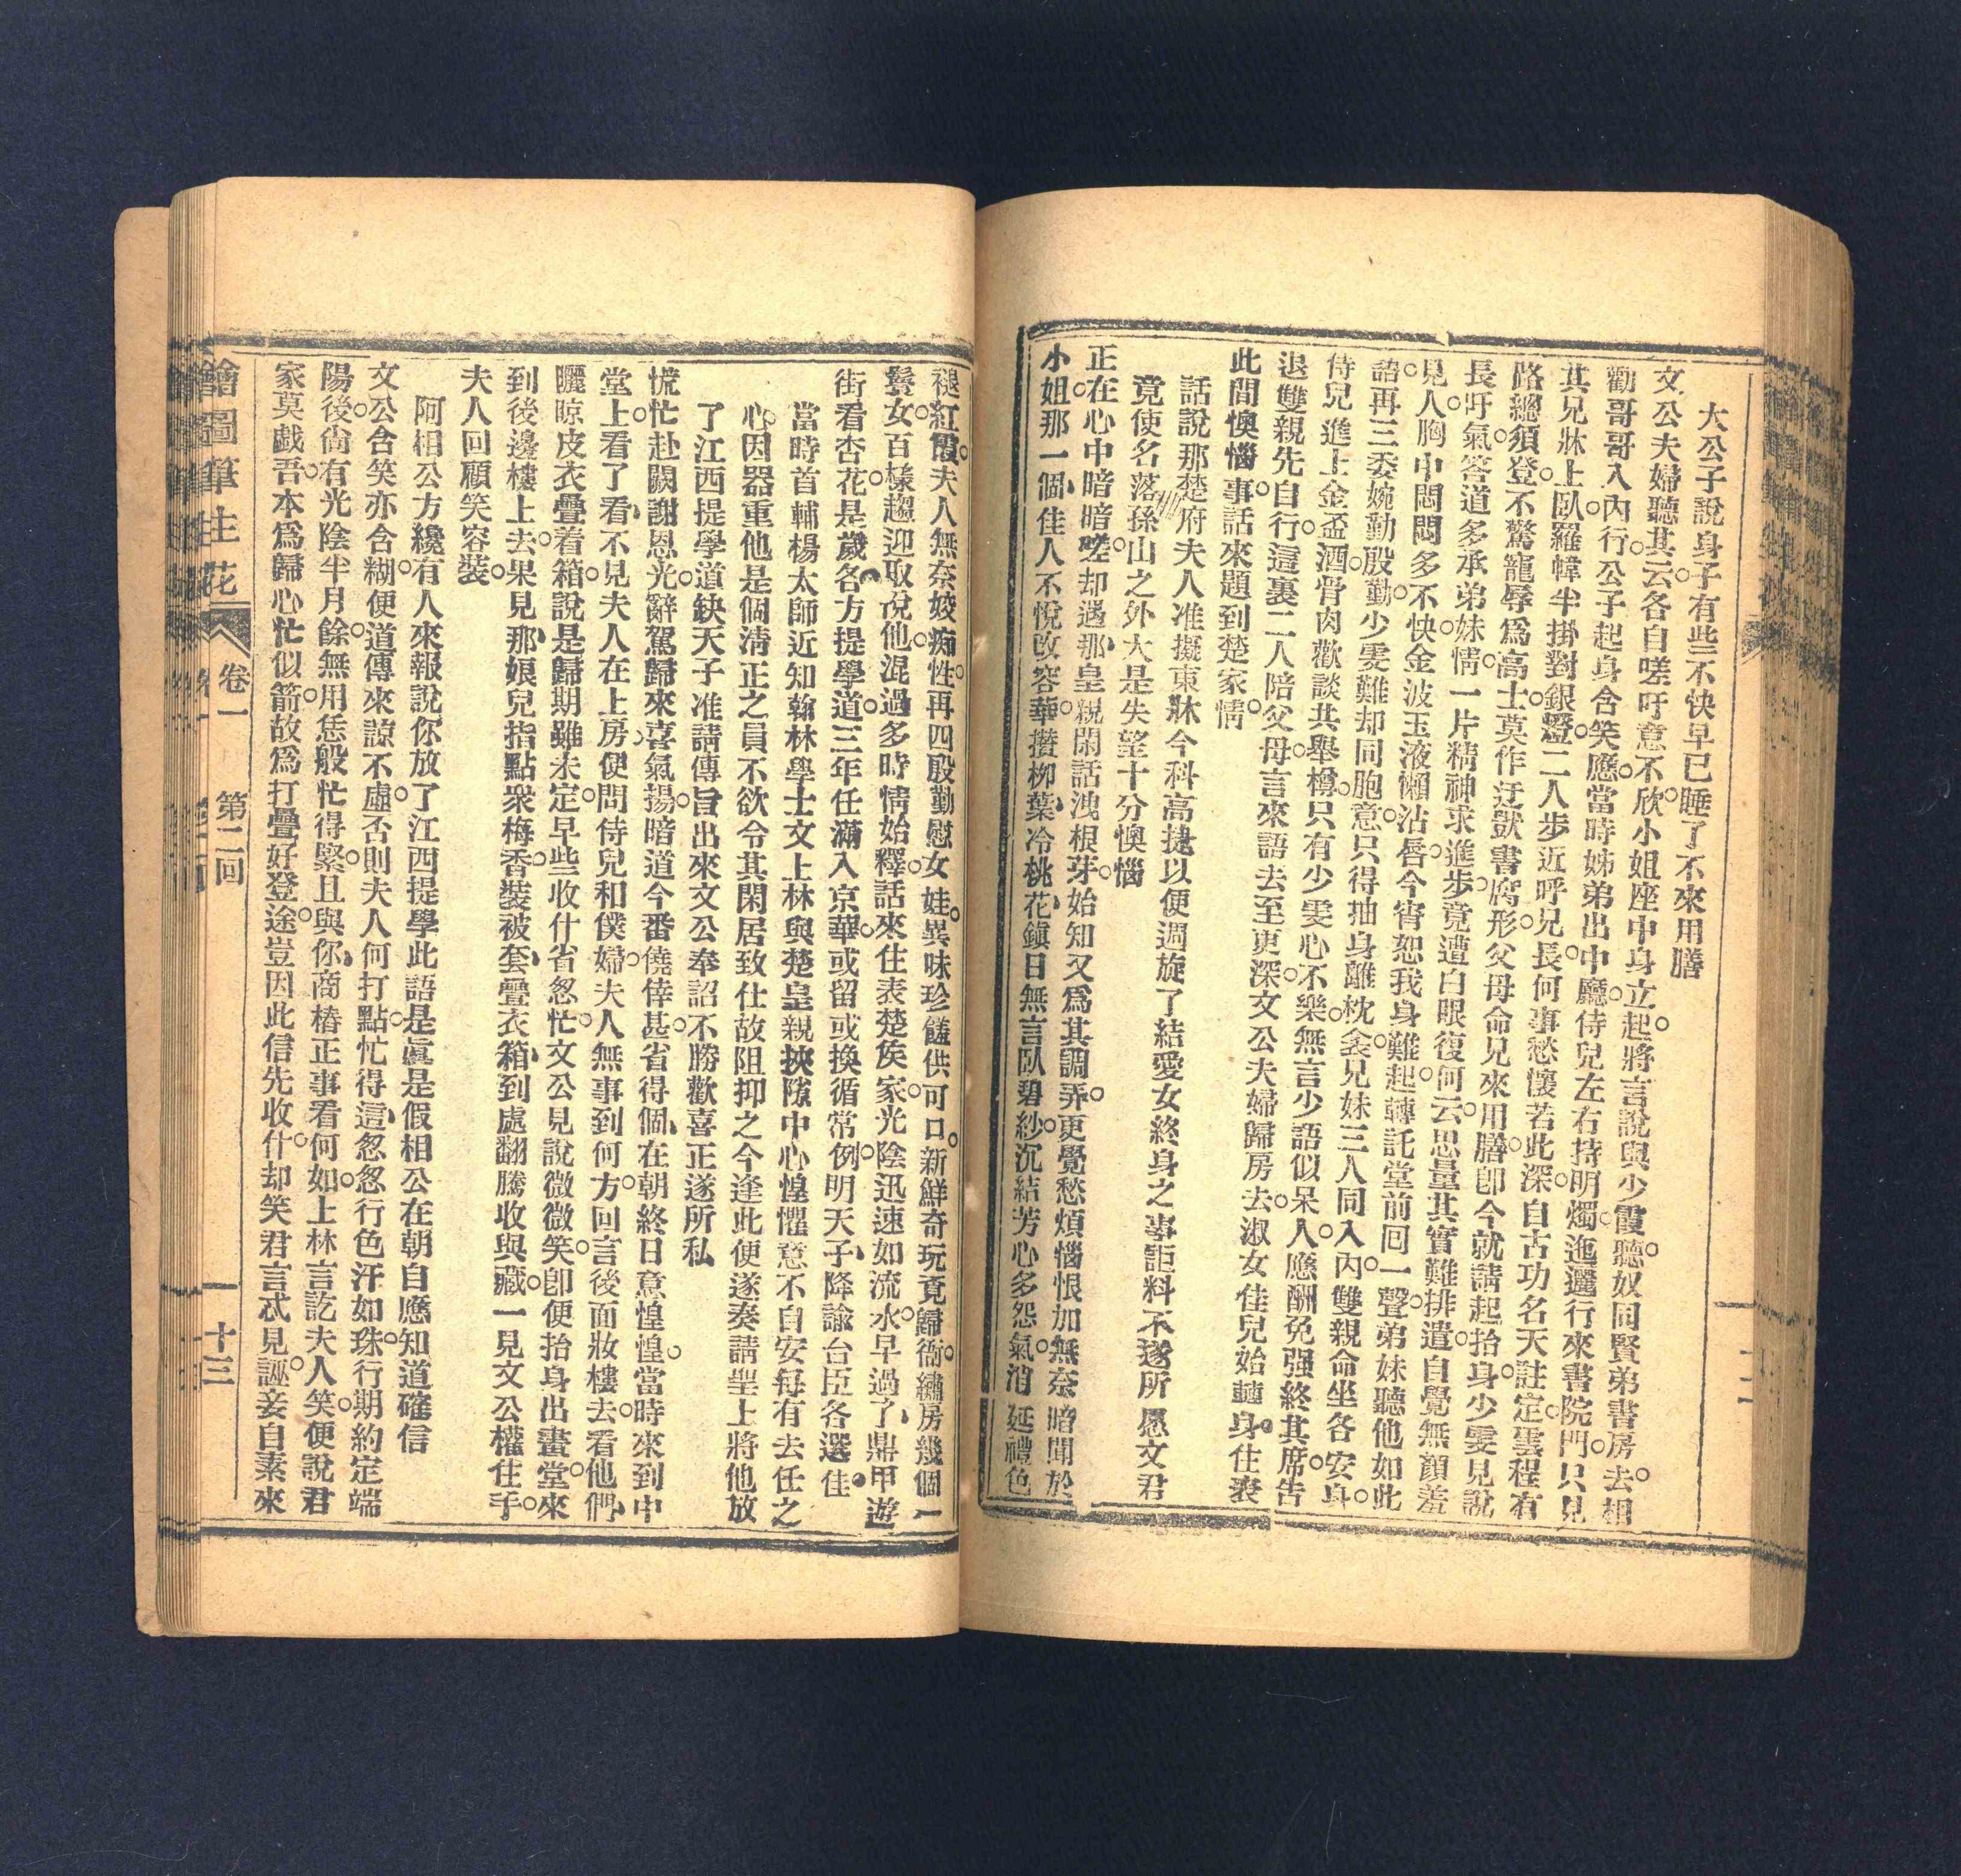 大公子說身子有些不快早已睡了不來用膳
文公夫婦聽其云各自嗟吁意不欣小姐座中身立起將言說與少霞聽奴同賢弟書房去相
勸哥哥入內行公子起身含笑應當時姊弟出中廳侍兒左右持明燭迤邐行來書院門只見
其兄牀上臥羅幃半掛對銀燈二人步近呼兄長何事愁懷若此深自古功名天註定雲程有
路總須登不驚寵辱爲高士莫作迂獃書腐形父母命兄來用膳卽今就請起抬身少雯見說
長吁氣答道多承弟妹情一片精神求進步竟遭白眼復何云思量其實難排遣自覺無顏羞
見人胸中悶悶多不快金波玉液懶沾唇今宵恕我身難起轉託堂前回一聲弟妹聽他如此
語再三委婉勤殷勤少雯難却同胞意只得抽身離枕衾兄妹三人同入內雙親命坐各安身
侍兒進上金盃酒骨肉歡談共舉樽只有少雯心不樂無言少語似呆人應酬免强終其席告
退雙親先自行這裏二人陪父母言來語去至更深文公夫婦歸房去淑女佳兒始轉身住表
此間懊惱事話來題到楚家情
話說那楚府夫人准擬東牀今科高捷以便週旋了結愛女終身之事詎料不遂所愿文君
竟使名落孫山之外大是失望十分懊惱
正在心中暗暗嗟却遇那皇親閑話洩根芽始知又爲其調弄更覺愁煩惱恨加無奈暗聞於
小姐那一個佳人不悅改容華攢柳葉冷桃花鎭日無言臥碧紗沉結芳心多怨氣消延禮色
褪紅霞夫人無奈姣痴性再四殷勤慰女娃異味珍饈供可口新鮮奇玩竟歸衙繡房幾個一
鬟女百樣趨迎取悅他混過多時情始釋話來住表楚侯家光陰迅速如流水早過了鼎甲遊
街看杏花是歲各方提學道三年任滿入京華或留或換循常例明天子降諭台臣各選佳
當時首輔楊太師近知翰林學士文上林與楚皇親挾隙中心惶懼意不自安每有去任之
心因器重他是個清正之員不欲令其閑居致仕故阻抑之今逢此便遂奏請聖上將他放
了江西提學道缺天子准請傳旨出來文公奉詔不勝歡喜正遂所私
慌忙赴闕謝恩光辭駕歸來喜氣揚暗道今番僥倖甚省得個在朝終日意惶惶當時來到中
堂上看了看不見夫人在上房便問侍兒和僕婦夫人無事到何方回言後面妝樓去看他們
曬晾皮衣疊着箱說是歸期雖未定早些收什省忽忙文公見說微微笑卽便抬身出畫堂來
到後邊樓上去果見那娘兒指點衆梅香裝被套疊衣箱到處翻騰收與藏一見文公權住手
夫人回顧笑容裝
阿相公方纔有人來報說你放了江西提學此語是眞是假相公在朝自應知道確信
文公含笑亦含糊便道傳來諒不虛否則夫人何打點忙得這忽忽行色汗如珠行期約定端
陽後尙有光陰半月餘無用恁般忙得緊且與你商樁正事看何如上林言訖夫人笑便說君
家莫戲吾本爲歸心忙似箭故爲打疊好登途豈因此信先收什却笑君言忒見誣妾自素來
繪圖筆生花 卷一 第二回 十三